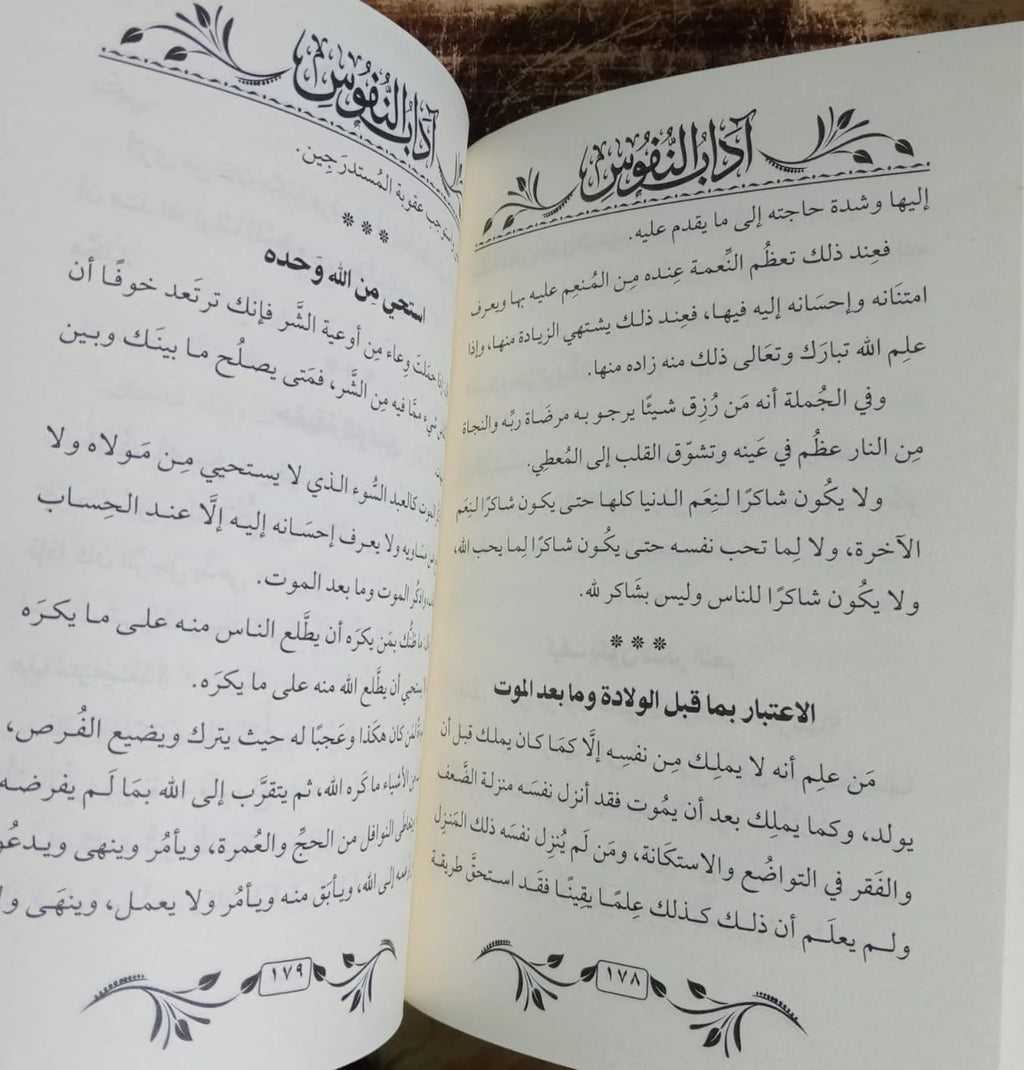 آدَابُ النُّفُوسِ
إليها وشدة حاجته إلى ما يقدم عليه.
فعِند ذلك تعظُم النِّعمة عِنده مِن المُنعِم عليه بها ويعرف
امتنَانه وإحسَانه إليه فيها، فعِند ذلك يشتهي الزيادة منها، وإذا
علِم الله تبارَك وتعَالى ذلك منه زاده منها.
وفي الجُملة أنه مَن رُزِق شيئًا يرجو به مرضَاة ربِّه والنجاة
مِن النار عظُم في عَينه وتشوّق القلب إلى المُعطِي.
ولا يكُون شاكرًا لنِعَم الدنيا كلها حتى يكون شاكرًا لنِعَم
الآخرة، ولا لِما تحب نفسه حتى يكُون شاكرًا لِما يحب الله،
ولا يكُون شاكرًا للناس وليس بشَاكر لله.
***
الاعتبار بما قبل الولادة وما بعد الموت
مَن علِم أنه لا يملِك مِن نفسِه إلَّا كمَا كان يملك قبل أن
يولد، وكما يملِك بعد أن يمُوت فقد أنزل نفسَه منزلة الضَّعف
والفَقر في التواضُع والاستكَانة، ومَن لَم يُنزِل نفسَه ذلك المَنزِل
ولـم يعلَـم أن ذلـك كـذلك عِلمًـا يقِينًـا فقَـد استحقَّ طريقة
١٧٨
آدَابُ النُّفُوسِ
عقوبة المُستدرَجِين.
***
استحي مِن الله وَحده
حمَلتَ وِعاء مِن أوعية الشَّر فإنك ترتَعد خوفًا أن
شيء ممَّا فيه مِن الشَّر، فمَتى يصلُح ما بينَك وبين
الموت كالعبد السُّوء الذي لا يستحيي مِـن مَـولاه ولا
ولا يعرف إحسَانه إليه إلَّا عند الحِساب
واذكُر الموت وما بعد الموت.
ظنُّك بمَن يكرَه أن يطَّلع الناس منـه علـى مـا يكـرَه
يستحي أن يطَّلع الله منه على ما يكرَه.
كان هكَذا وعَجبًا له حيث يترك ويضيع الفُرص،
الأشياء ما كَره الله، ثم يتقرَّب إلى الله بمَا لَـم يفرضـه
النوافل من الحجِّ والعُمرة، ويأمُر وينهى ويـدعُو
إلى الله، ويأبَق منه ويأمُر ولا يعمـل، وينهَـى
١٧٩